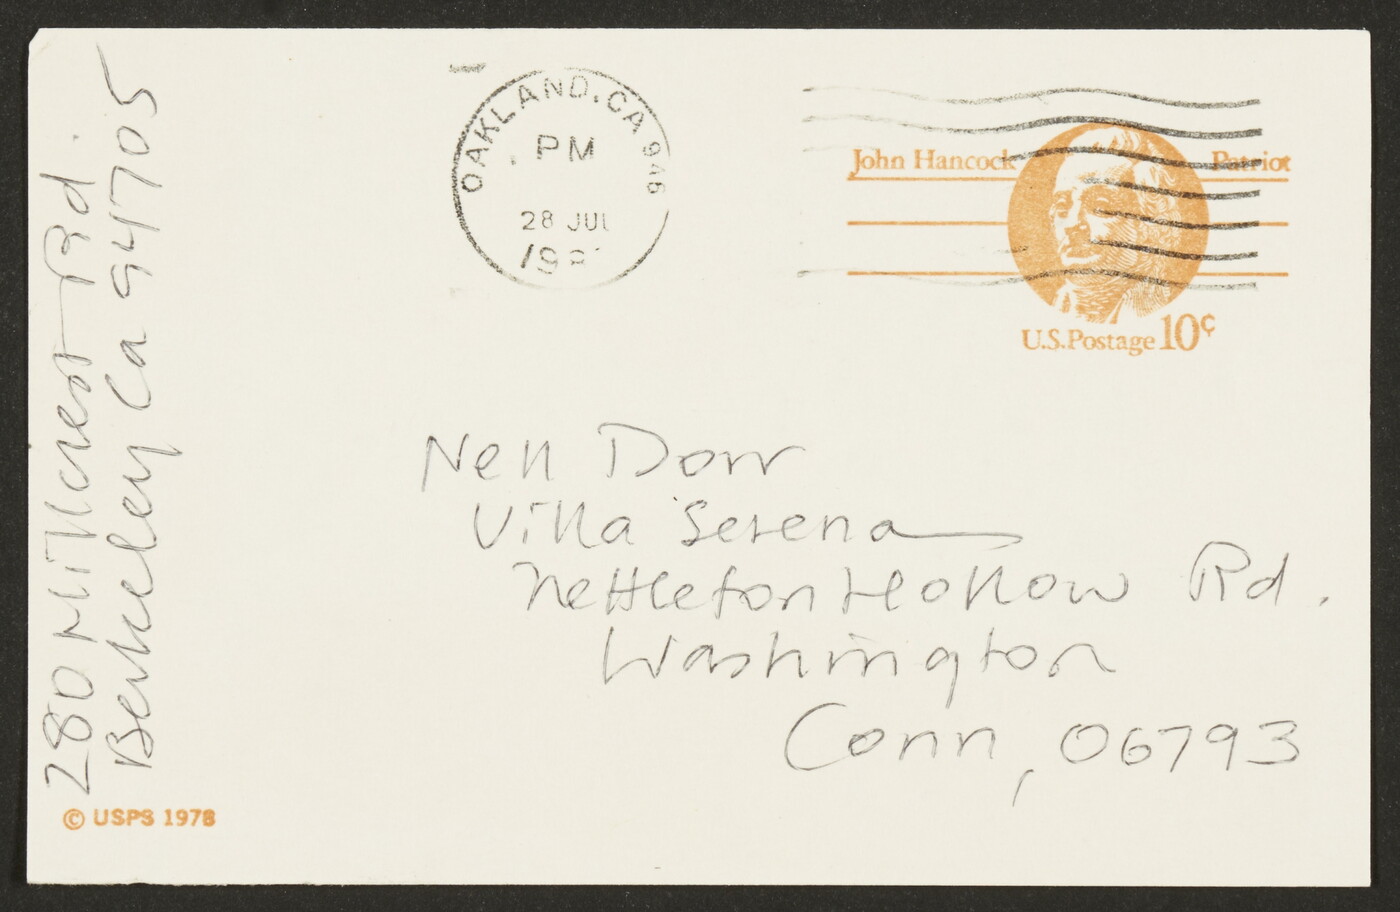 280 Millcrest Rd.
Berkeley Ca 94705
OAKLAND, CA 946
PM
28 JUL
John Hancock Patriot
U.S. Postage 10¢
Nell Dorr
Villa Serena
Nettleton Hollow Rd.
Washington
Conn, 06793
© USPS 1978